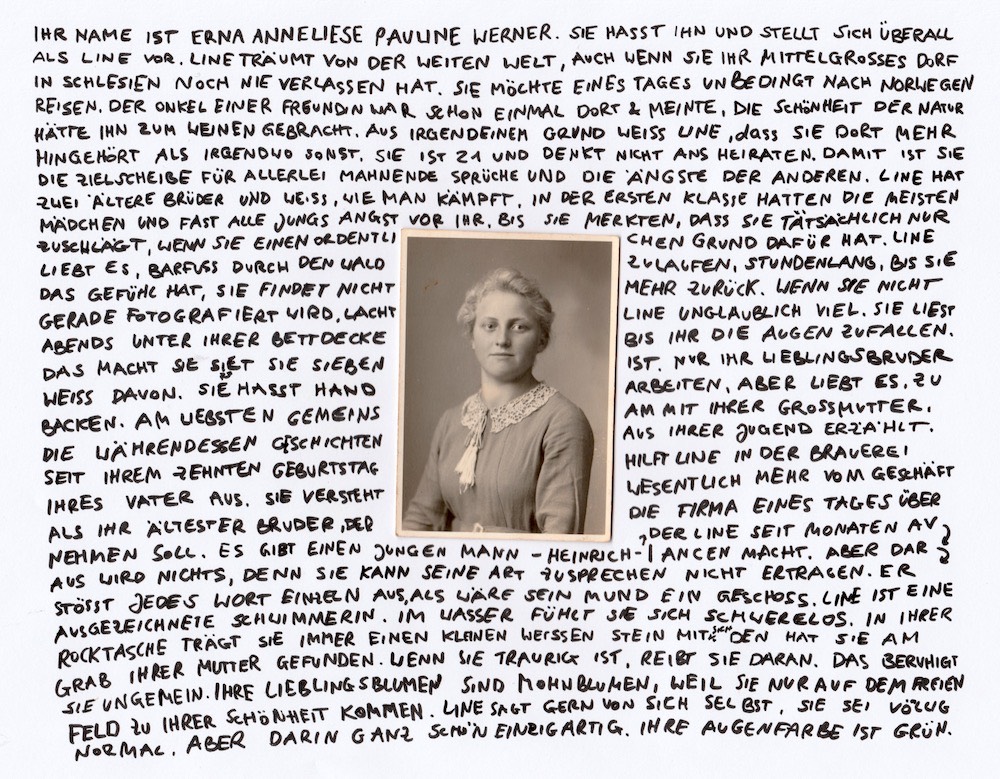 IHR NAME IST ERNA ANNELIESE PAULINE WERNER. SIE HASST IHN UND STELLT SICH ÜBERALL
ALS LINE VOR. LINE TRÄUMT VON DER WEITEN WELT, AUCH WENN SIE IHR MITTELGROSSES DORF
IN SCHLESIEN NOCH NIE VERLASSEN HAT. SIE MÖCHTE EINES TAGES UNBEDINGT NACH NORWEGEN
REISEN. DER ONKEL EINER FREUNDIN WAR SCHON EINMAL DORT & MEINTE, DIE SCHÖNHEIT DER NATUR
HÄTTE IHN ZUM WEINEN GEBRACHT. AUS IRGENDEINEM GRUND WEISS LINE, dASS SIE DORT MEHR
HINGEHÖRT ALS IRGENDWO SONST. SIE IST 21 UND DENKT NICHT ANS HEIRATEN. DAMIT IST SIE
DIE ZIELSCHEIBE FÜR ALLERLEI MAHNENDE SPRÜCHE UND DIE ÄNGSTE DER ANDEREN. LINE HAT
ZWEI ÄLTERE BRÜDER UND WEISS, WIE MAN KÄMPFT. IN DER ERSTEN KLASSE HATTEN DIE MEISTEN
MÄDCHEN UND FAST ALLE JUNGS ANGST VOR IHR. BIS SIE MERKTEN, DASS SIE TÄTSÄCHLICH NUR
ZUSCHLÄGT, WENN SIE EINEN ORDENTLI CHEN GRUND DAFÜR HAT. LINE
LIEBT ES, BARFUSS DURCH DEN WALD ZU LAUFEN, STUNDENLANG, BIS SIE
DAS GEFÜHL HAT, SIE FINDET NICHT MEHR ZURÜCK. WENN SIE NICHT
GERADE FOTOGRAFIERT WIRD, LACHT LINE UNGLAUBLICH VIEL. SIE LIEST
ABENDS UNTER IHRER BETTDECKE BIS IHR DIE AUGEN ZUFALLEN.
DAS MACHT SIE SEIT SIE SIEBEN IST. NUR IHR LIEBLINGSBRUDER
WEISS DAVON. SIE HASST HAND ARBEITEN, ABER LIEBT ES, ZU
BACKEN. AM LIEBSTEN GEMEINS AM MIT IHRER GROSSMUTTER,
DIE WÄHRENDESSEN GESCHICHTEN AUS IHRER JUGEND ERZÄHLT.
SEIT IHREM ZEHNTEN GEBURTSTAG HILFT LINE IN DER BRAUEREI
IHRES VATER AUS. SIE VERSTEHT WESENTLICH MEHR VOM GESCHÄFT
ALS IHR ÄLTESTER BRUDER, DER DIE FIRMA EINES TAGES ÜBER
NEHMEN SOLL. ES GIBT EINEN JUNGEN MANN - HEINRICH -, DER LINE SEIT MONATEN AV
ANCEN MACHT. ABER DAR
AUS WIRD NICHTS, DENN SIE KANN SEINE ART ZU SPRECHEN NICHT ERTRAGEN. ER
STÖSST JEDES WORT EINZELN AUS, ALS WÄRE SEIN MUND EIN GESCHOSS. LINE IST EINE
AUSGEZEICHNETE SCHWIMMERIN. IM WASSER FÜHLT SIE SICH SCHWERELOS. IN IHRER
ROCKTASCHE TRÄGT SIE IMMER EINEN KLEINEN WEISSEN STEIN MIT SICH, DEN HAT SIE AM
GRAB IHRER MUTTER GEFUNDEN. WENN SIE TRAURIG IST, REIBT SIE DARAN. DAS BERUHIGT
SIE UNGEMEIN. IHRE LIEBLINGSBLUMEN SIND MOHNBLUMEN, WEIL SIE NUR AUF DEM FREIEN
FELD ZU IHRER SCHÖNHEIT KOMMEN. LINE SAGT GERN VON SICH SELBST, SIE SEI VÖLLIG
NORMAL. ABER DARIN GANZ SCHÖN EINZIGARTIG. IHRE AUGENFARBE IST GRÜN.